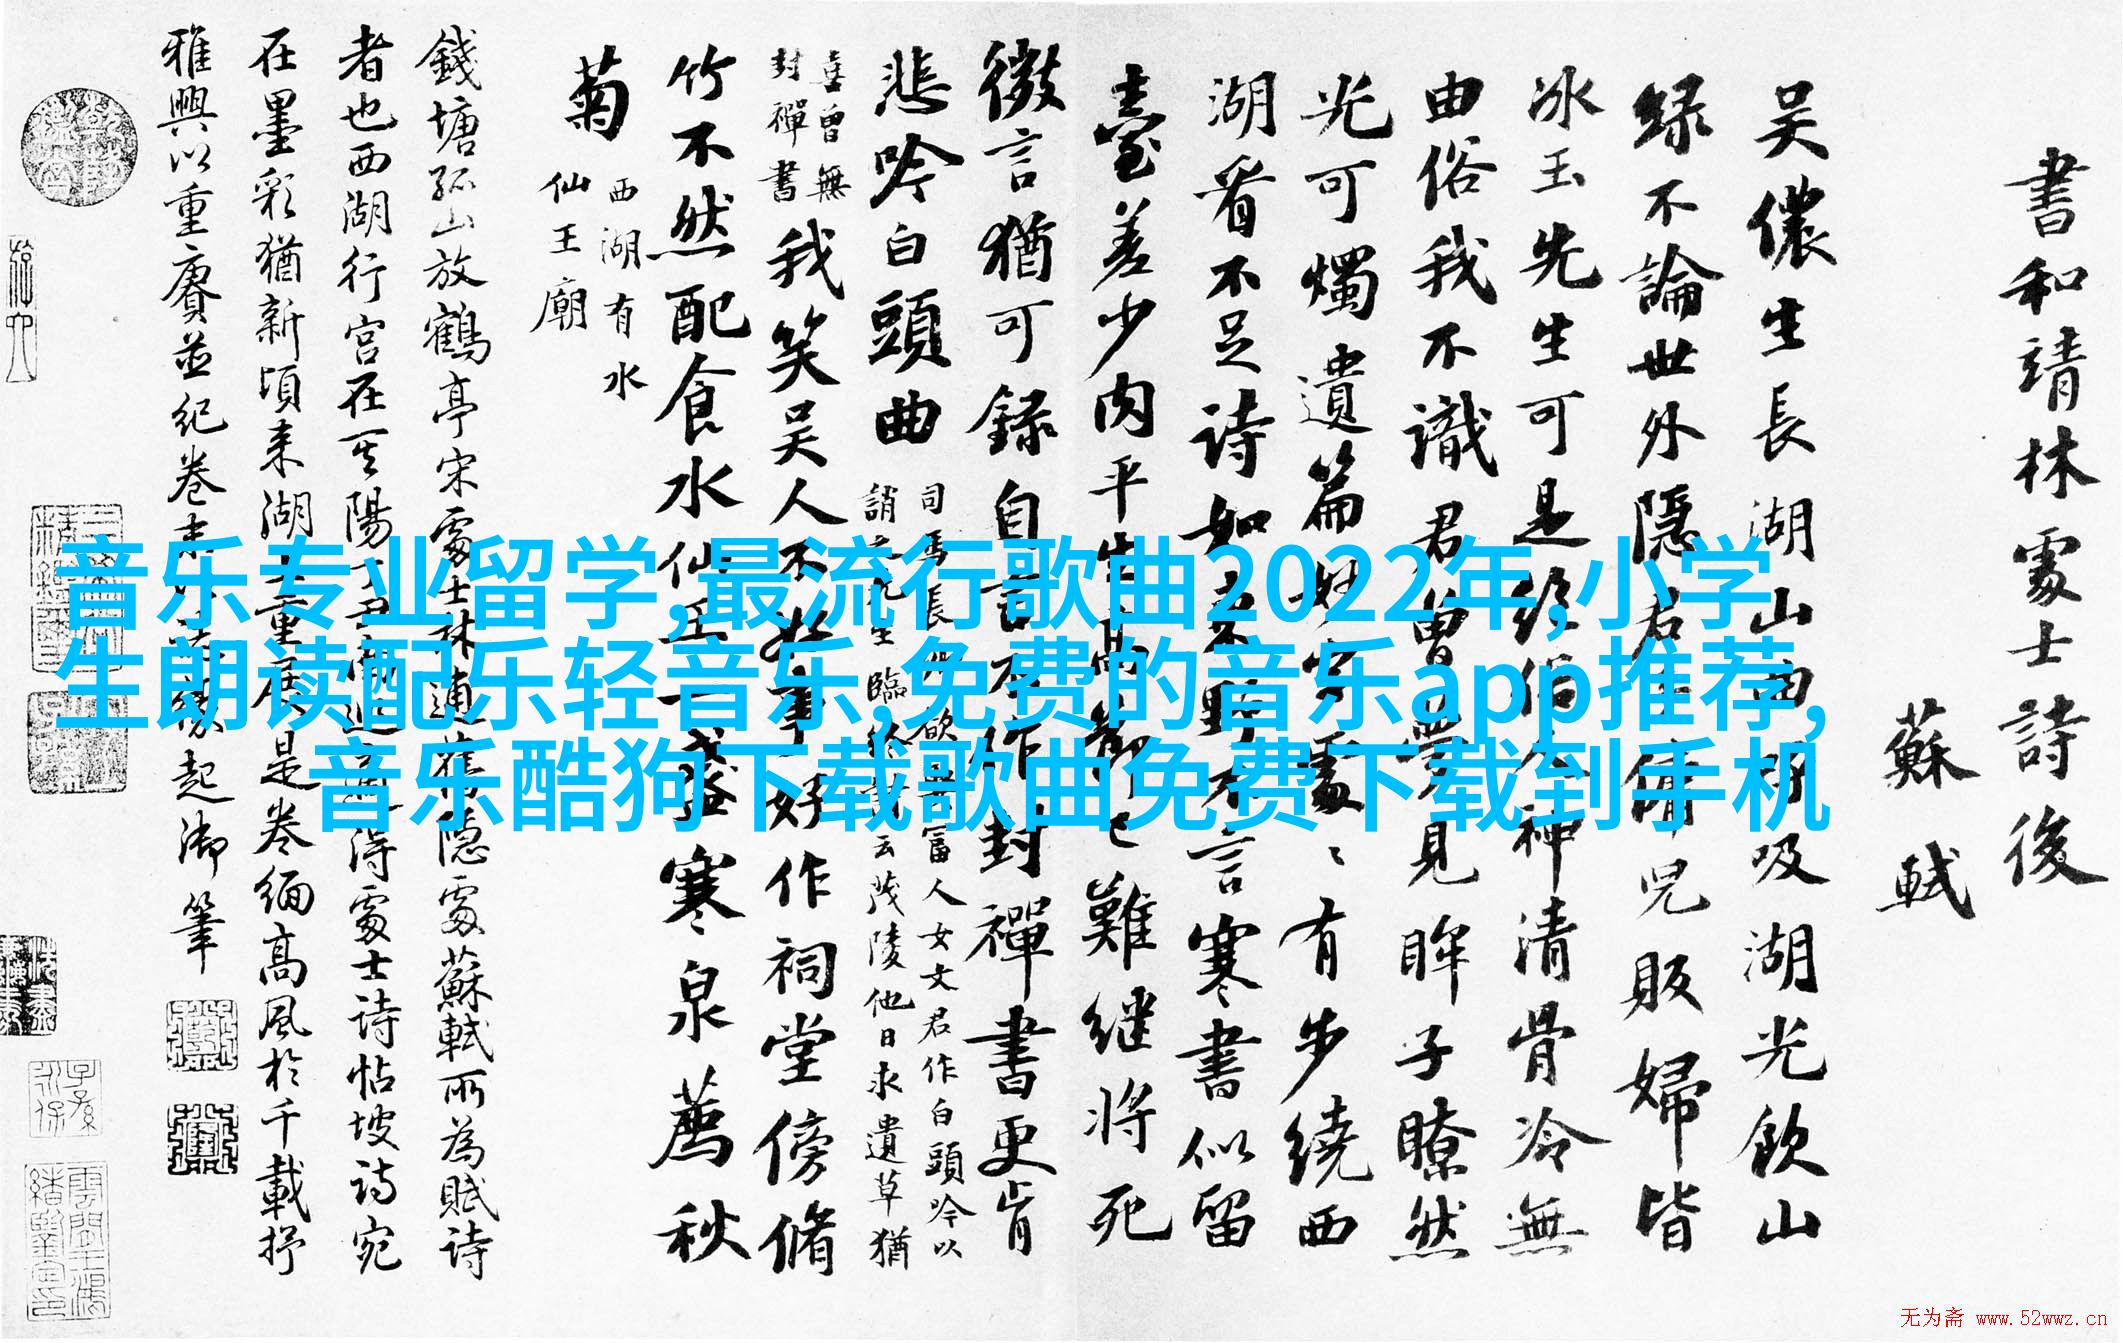 書和靖林處士詩後
蘇軾
吴儂生長湖山曲呼吸湖光飲山
緑不論世外隱君子傭兒販婦皆
冰玉先生可是絶俗人神清骨冷無
由俗我不識君曾夢見眸子瞭然
光可燭遺篇妙字處〻有步繞西
湖看不足詩如東野不言寒書似留
臺差少肉平生高節已難繼將死
微言猶可録自言不作封禪書更肯
悲吟白頭曲
司馬長卿欲娶富人女文君作白頭吟以
誚之先生臨終詩云茂陵他日求遺草猶
喜曾無
封禪書
我笑吴人不好事好作祠堂傍脩
竹不然配食水仙王一盞寒泉薦秋
菊
西湖有水
仙王廟
錢塘孤山放鶴亭宋處士林逋舊隱處蘇軾所為賦詩
者也西湖行宫在其陽丁丑南巡適得處士詩帖坡詩宛
在墨彩猶新頃来湖上重展是卷緬高風於千載抒
雅興以重賡並紀卷末以起御筆
音乐专业留学,最流行歌曲2022年,小学
生朗读配乐轻音乐,免费的音乐app推荐,
音乐酷狗下载歌曲免费下载到手机
无为斋 www.52wwz.cn